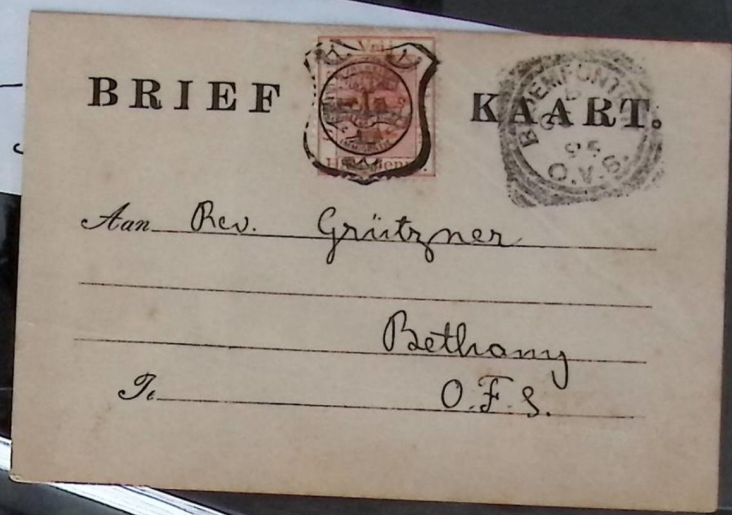 BRIEF KAART.
BLOEMFONTEIN
95
O.V.S.
Aan Rev. Grützner
Bethany
Te O.F.S.